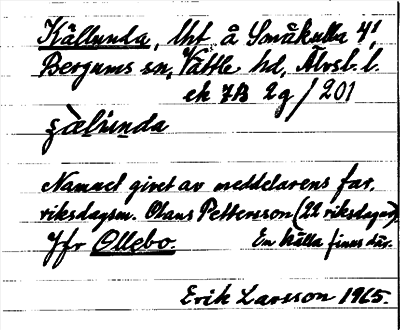 Källunda, lht å Småkulla 4¹,
Bergums sn, Vättle hd, Älvsb. l.
ek 7B 2g / 201
Namnet givet av meddelarens far,
riksdagsm. Olaus Pettersson (22 riksdagar).
Jfr Ollebo. En källa finns där.
Erik Larsson 1965.